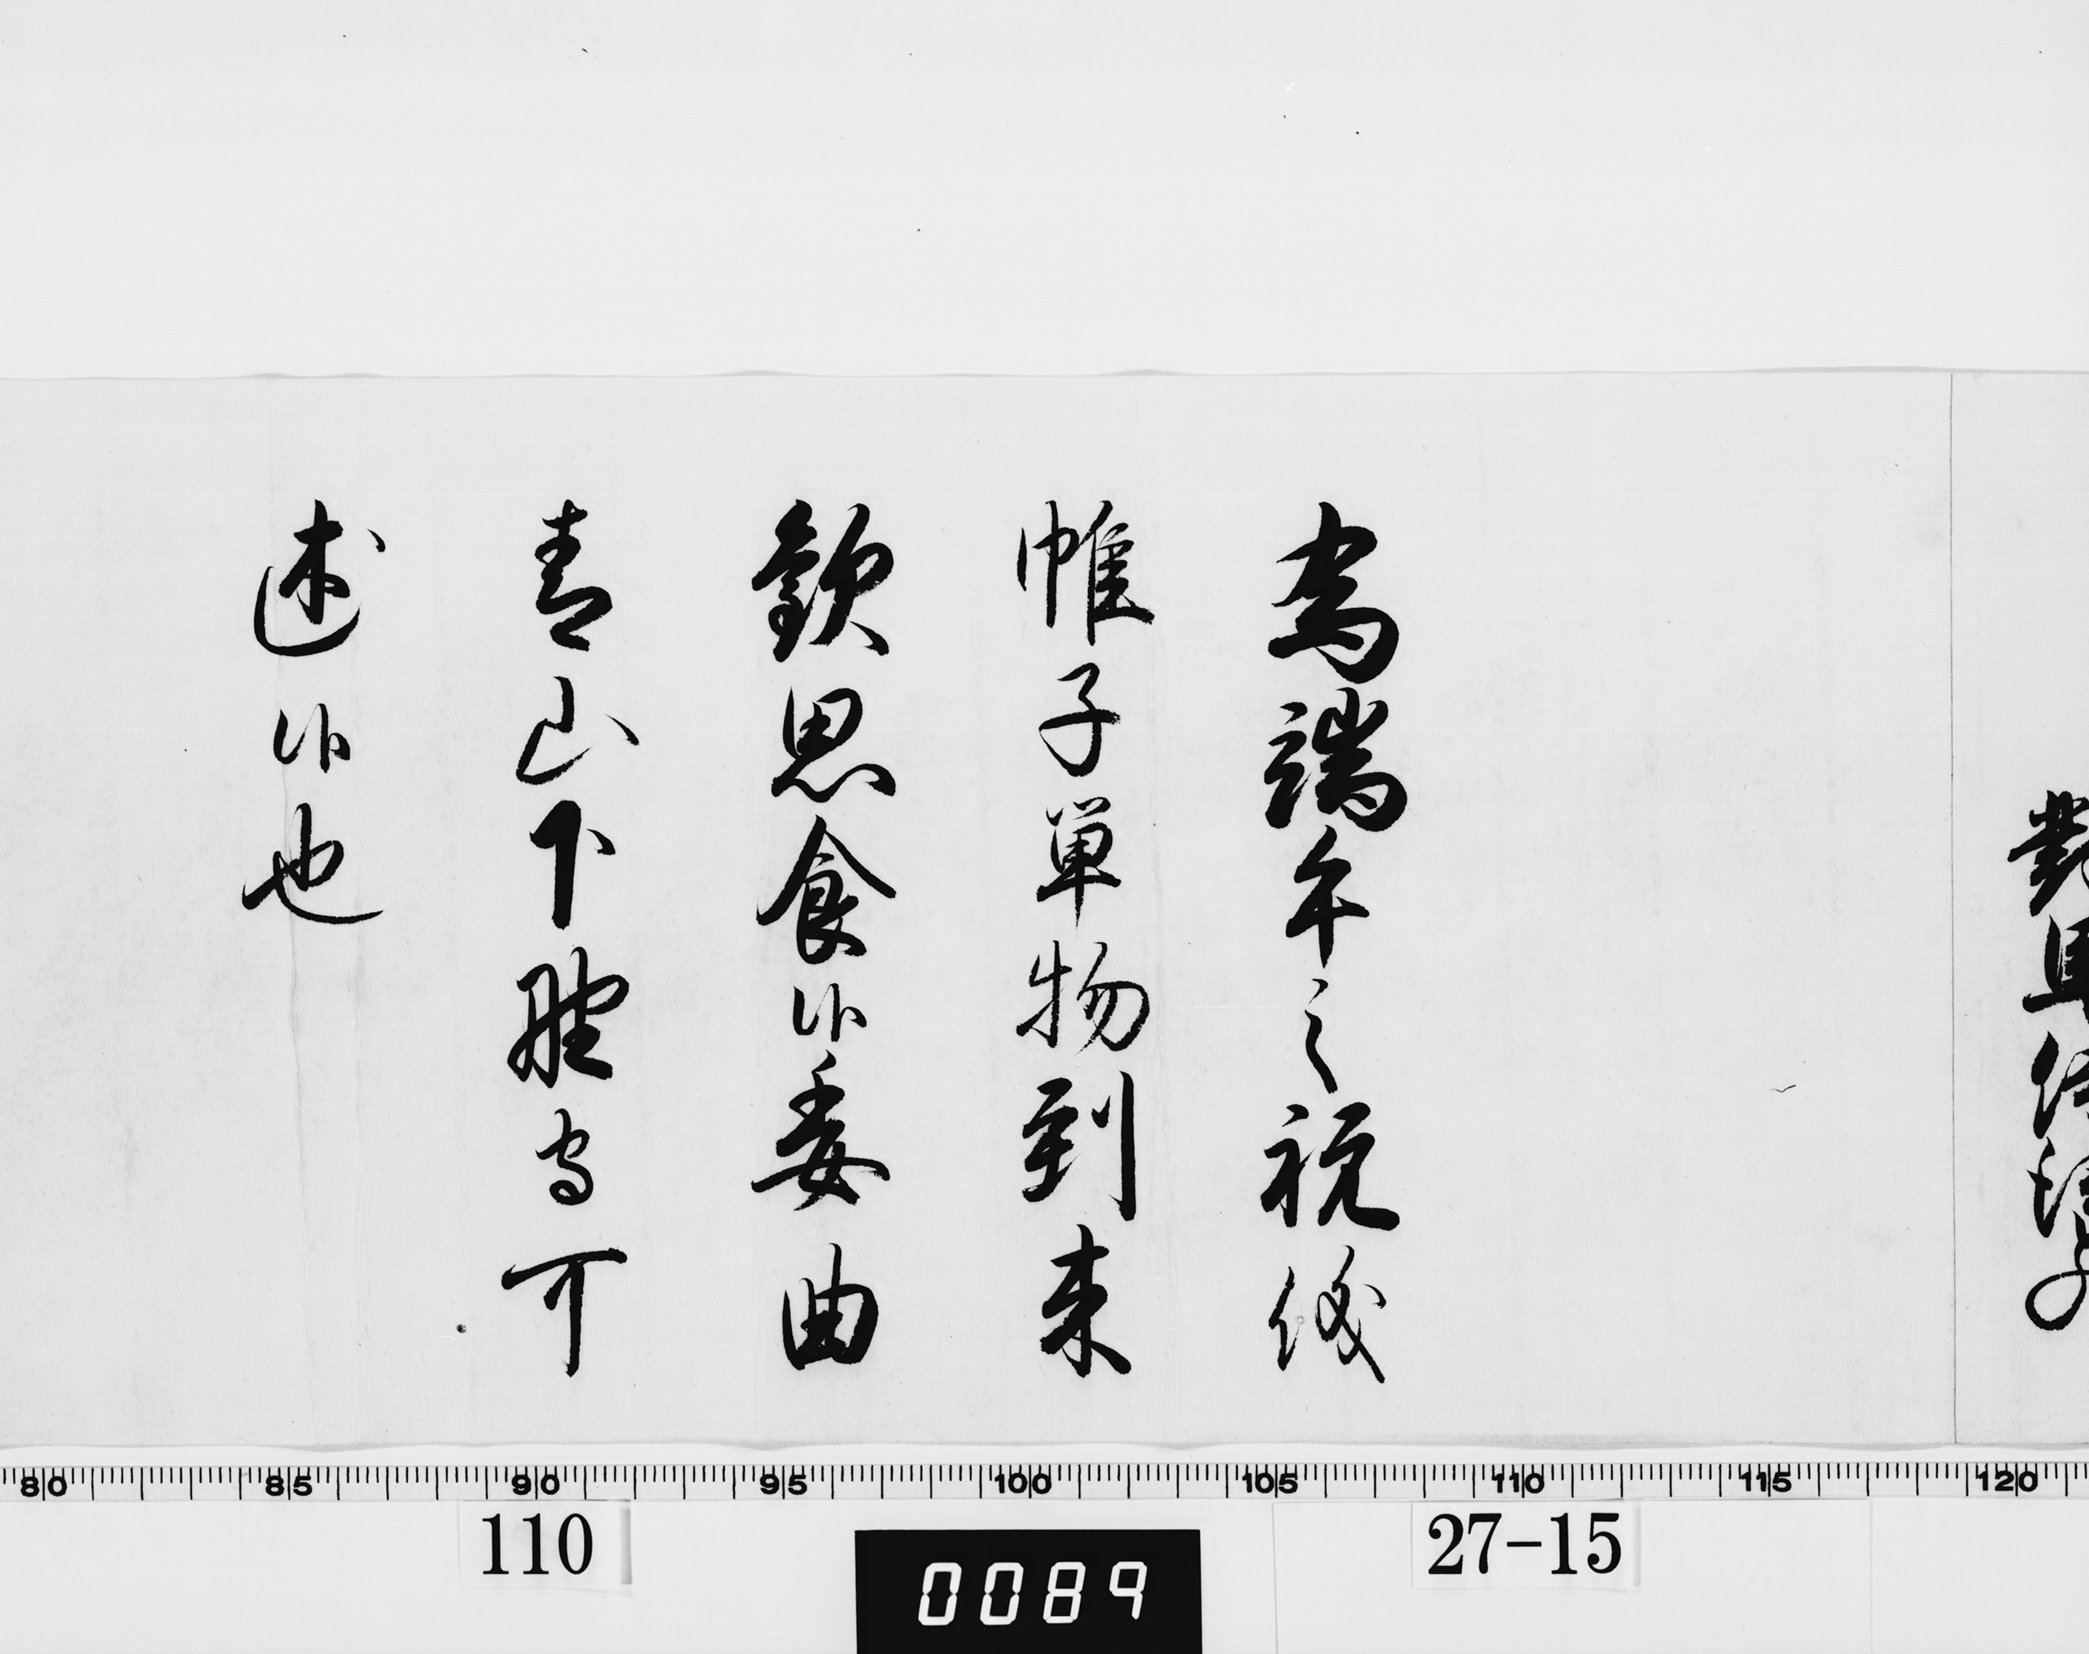 為端午之祝儀
帷子單物到来
歓思食候委曲
青山下野守可
述候也
80 85 90 95 100 105 110 115 120
110
27-15
0089